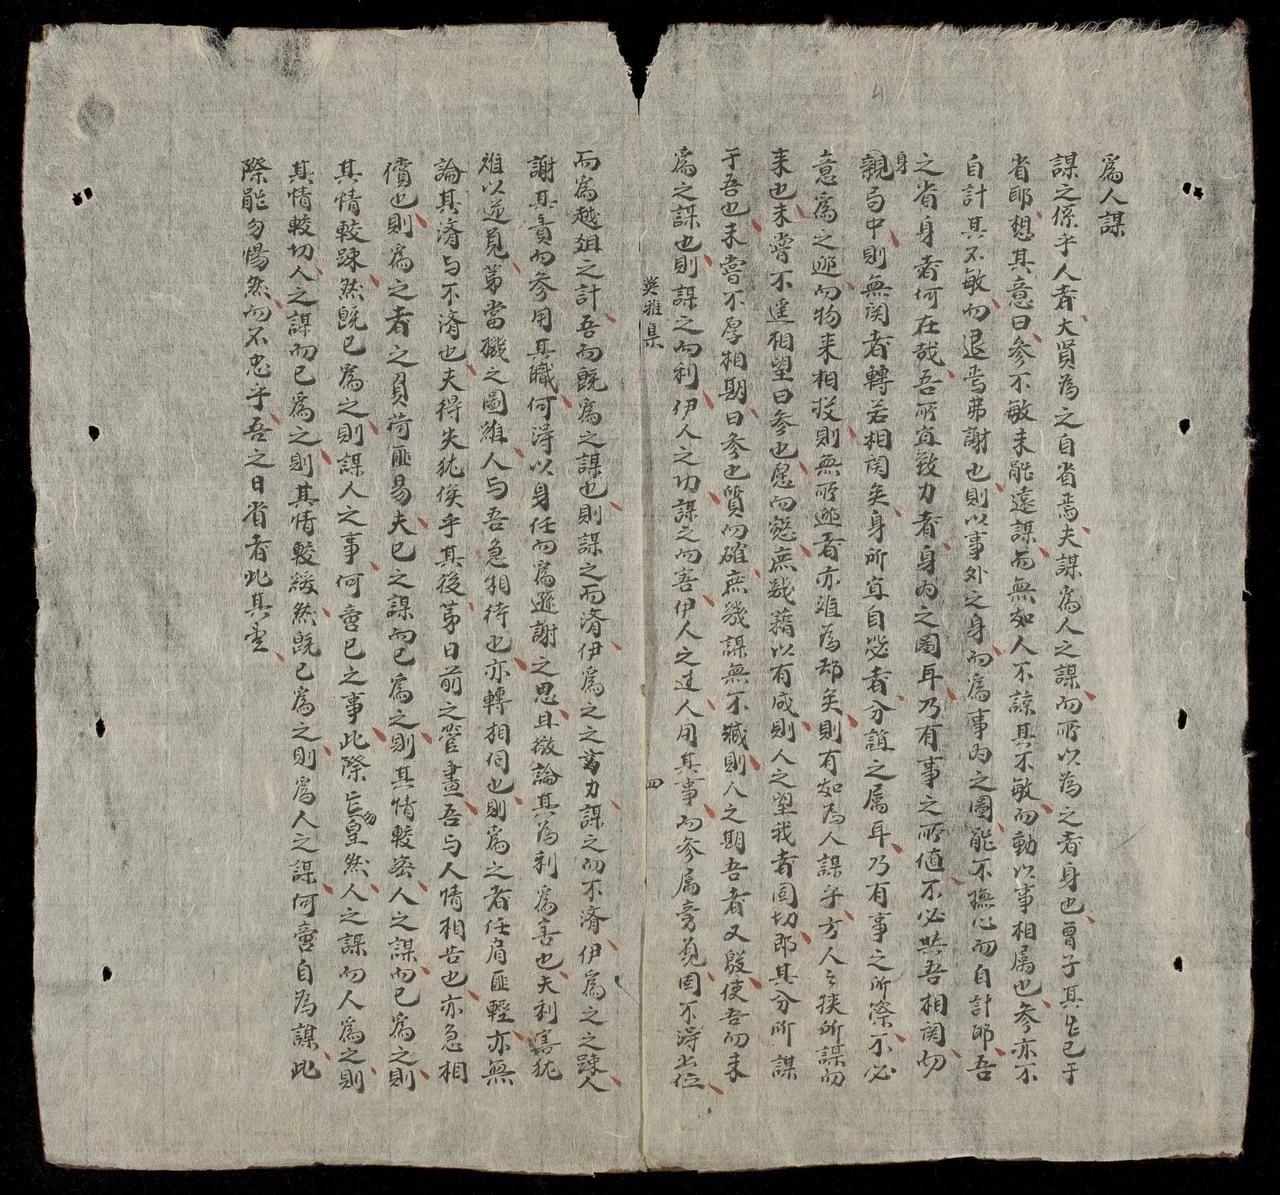 為人謀
謀之係乎人者大賢為之自省焉夫謀為人之謀而所以為之者身也曾子其先已于
省耶想其意曰參不敏未能遠謀而無如人不諒其不敏而動以事相屬也參亦不
自計其不敏而退焉弗謝也則以事外之身而為事內之圖能不撫心而自計耶吾
之省身者何在哉吾所宜致力者身內之圖耳乃有事之所值不必與吾相関切
身
親局中則無関者轉若相関矣身所宜自盡者分誼之属耳乃有事之所際不必
意為之迎而物来相投則無所迎者亦难為却矣則有如為人謀乎方人之挾所謀而
来也未嘗不遥相望曰參也愿而慤庶幾藉以有成則人之望我者固切即其分所謀
于吾也未嘗不厚相期曰參也質而確庶幾謀無不臧則人之期吾者又殷使吾而未
為之謀也則謀之而利伊人之功謀之而害伊人之过人用其事而參属旁覓固不得出位
英雅集
四
而為越俎之計吾而既為之謀也則謀之而济伊為之之力謀之而不济伊為之之疎人
謝其責而參用其職何得以身任而為遜謝之思且微論其為利為害也夫利害犹
难以逆覓第當機之圖維人与吾急相待也亦轉相伺也則為之者任肩匪輕亦無
論其済与不済也夫得失犹俟乎其後第日前之管畫吾与人情相告也亦急相
償也則為之者之負荷匪易夫已之謀而已為之則其情較密人之謀而已為之則
其情較踈然既已為之則謀人之事何啻已之事此際亡皇然人之謀而人為之則
勿
其情較切人之謀而已為之則其情較緩然既已為之則為人之謀何啻自為謀此
際能勿惕然而不忠乎吾之日省者此其壹